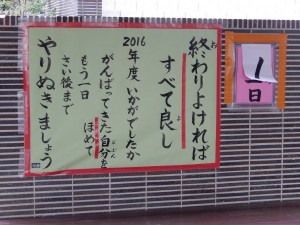 終わりよければ
すべて良し
2016年度いかがでしたか
がんばってきた自分を
ほめて
もう一日
さい後まで
やりぬきましょう
1
日